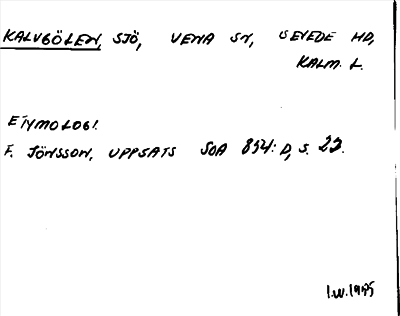 KALVGÖLEN, SJÖ, VENA SN, SEVEDE HD,
KALM. L.
ETYMOLOGI.
F. JÖNSSON, UPPSATS SOA 834: D, S. 23.
I.W. 1975